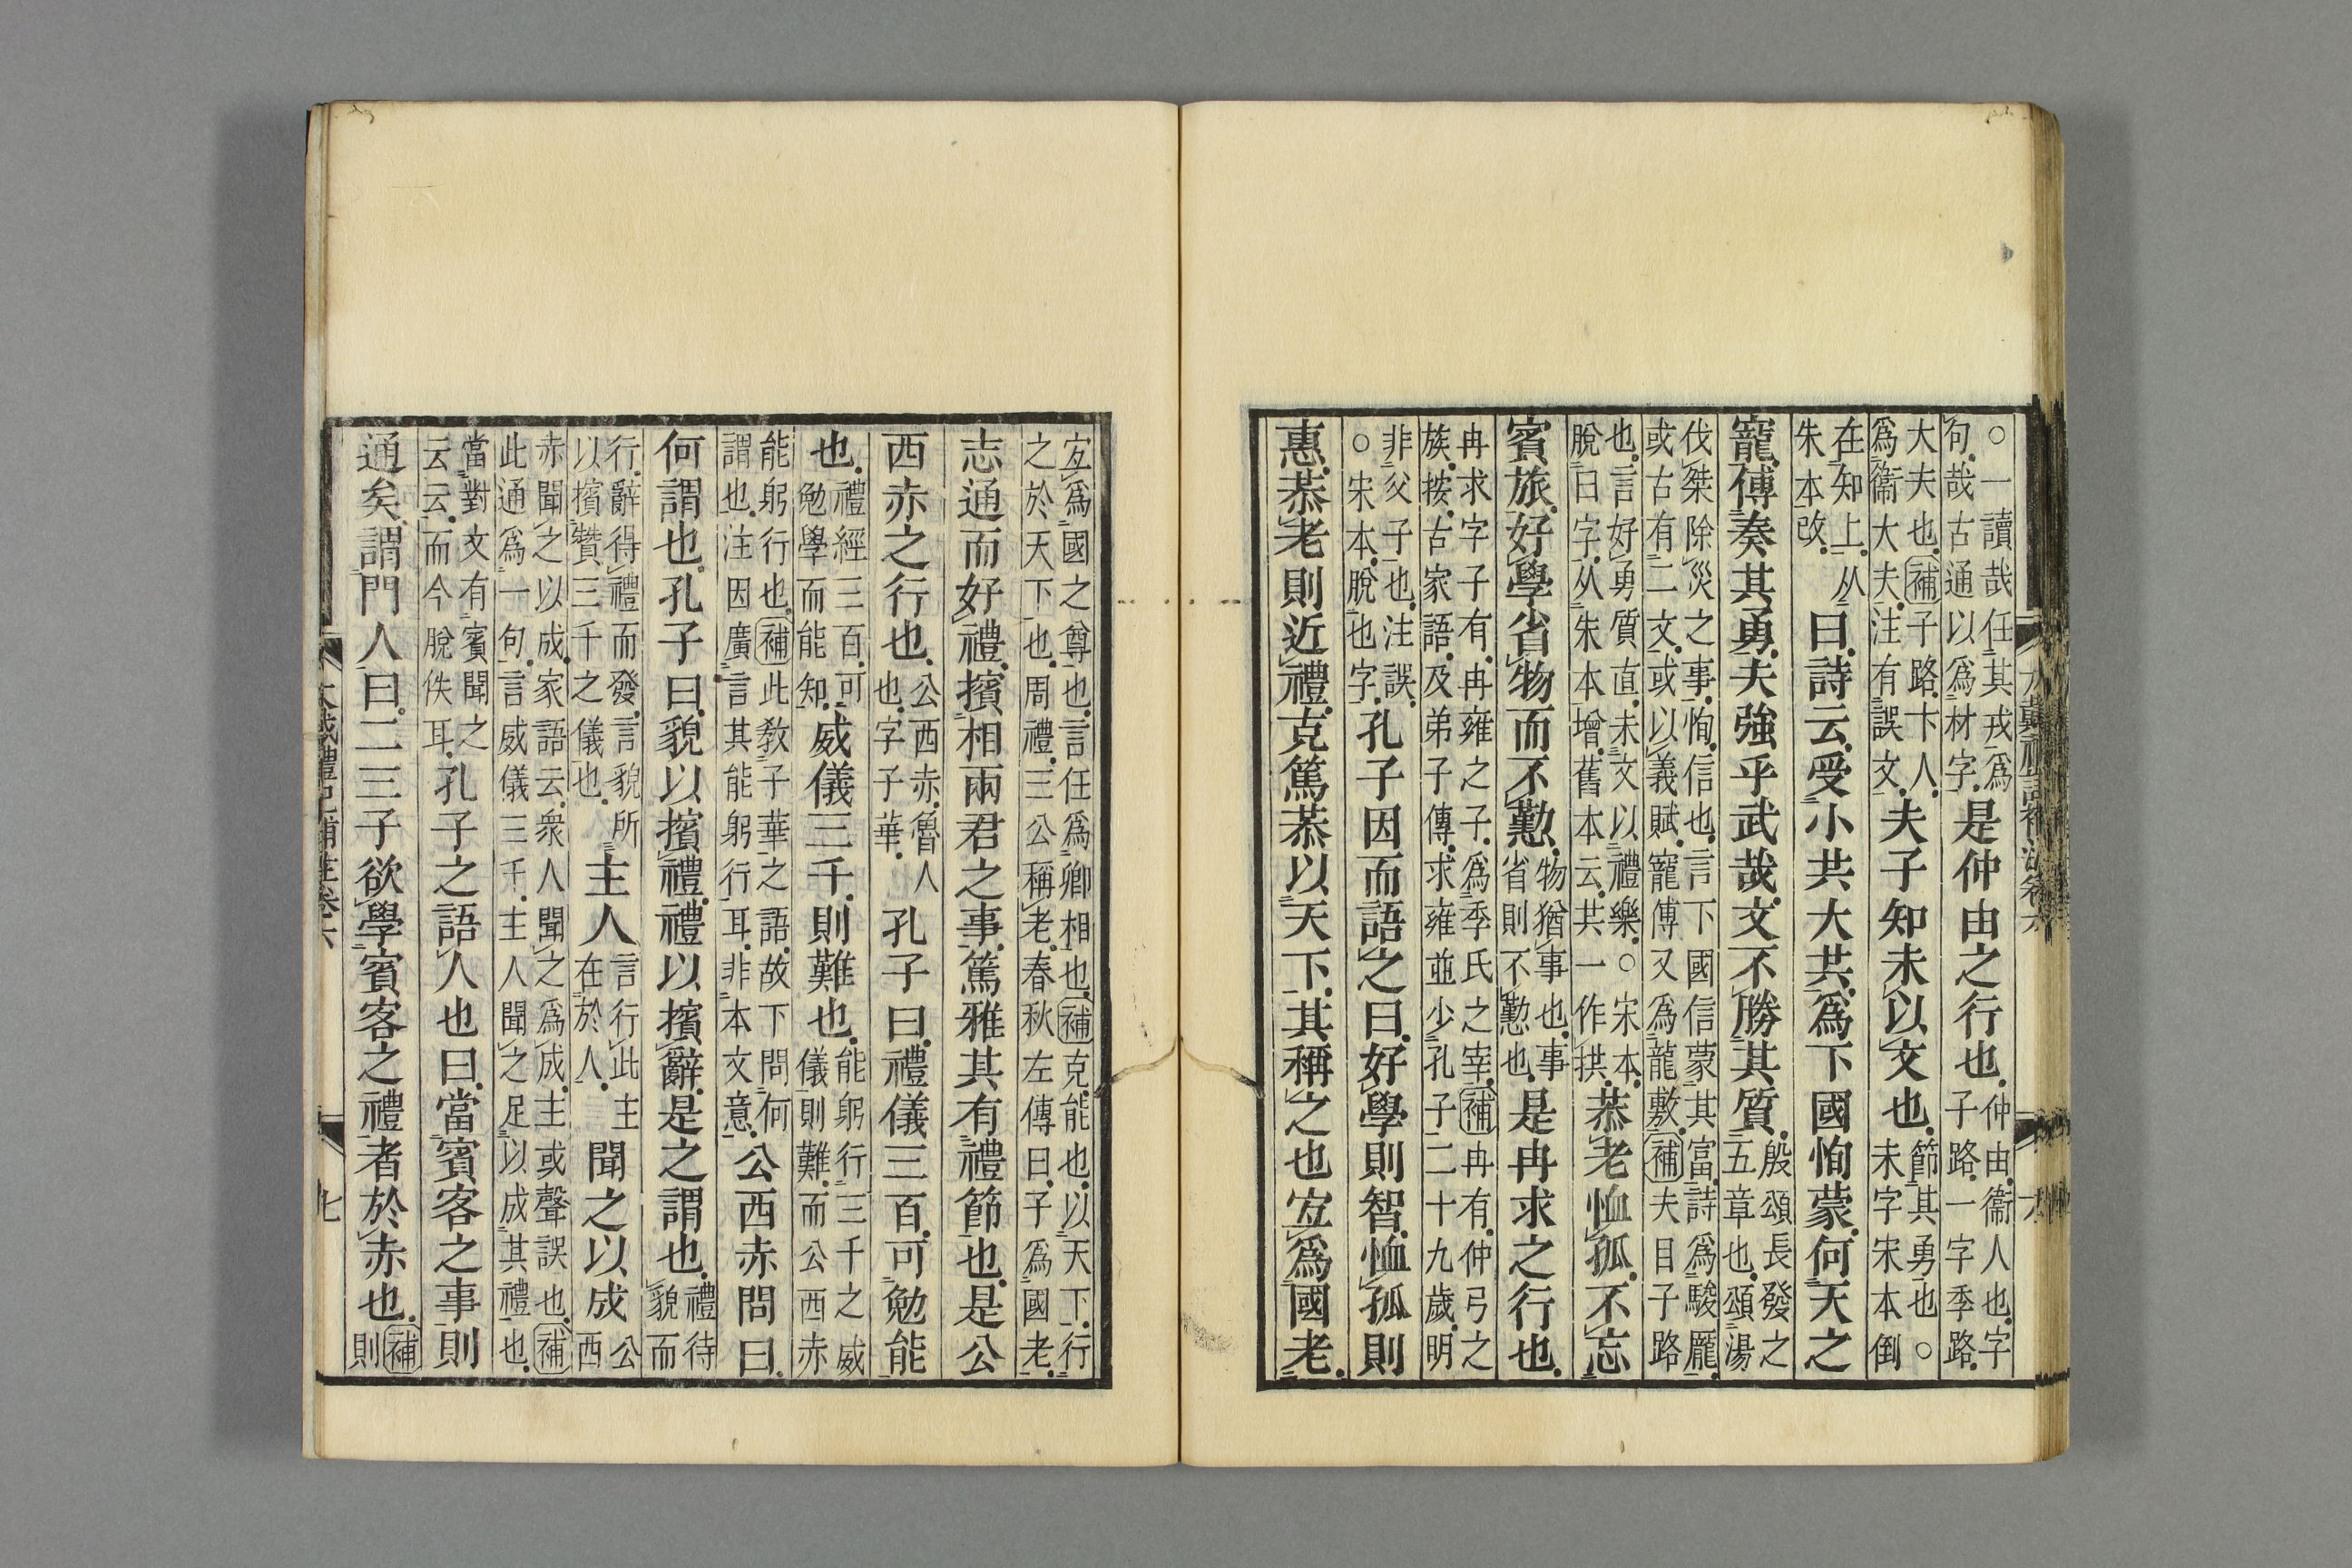 ○一讀哉任其戎爲句哉古通以爲材字是仲由之行也仲由衞人也字子路一字季路
大夫也補子路卞人爲衞大夫注有誤文夫子知未以文也節其勇也○未字宋本倒
在知上从朱本改曰詩云受小共大共爲下國恂蒙何天之
寵傅奏其勇夫強乎武哉文不勝其質殷頌長發之五章也頌湯
伐桀除災之事恂信也言下國信蒙其富詩爲駿厖或古有二文或以義賦寵傅又爲龍敷補夫目子路
也言好勇質直未文以禮樂○宋本脫曰字从朱本增舊本云共一作拱恭老恤孤不忘
賓旅好學省物而不懃物猶事也事省則不懃也是冉求之行也
冉求字子有冉雍之子爲季氏之宰補冉有仲弓之族按古家語及弟子傳求雍並少孔子二十九歲明
非父子也注誤○宋本脫也字孔子因而語之曰好學則智恤孤則
惠恭老則近禮克篤恭以天下其稱之也宐爲國老
宐爲國之尊也言任爲卿相也補克能也以天下行之於天下也周禮三公稱老春秋左傳曰子爲國老
志通而好禮擯相兩君之事篤雅其有禮節也是公
西赤之行也公西赤魯人也字子華孔子曰禮儀三百可勉能
也禮經三百可勉學而能知威儀三千則難也能躬行三千之威儀則難而公西赤
能躬行也補此教子華之語故下問何謂也注因廣言其能躬行耳非本文意公西赤問曰
何謂也孔子曰貌以擯禮禮以擯辭是之謂也禮待貌而
行辭得禮而發言貌所以擯贊三千之儀也主人言行此主在於人聞之以成公西
赤聞之以成家語云衆人聞之爲成主或聲誤也補此通爲一句言威儀三千主人聞之足以成其禮也
當對文有賓聞之云云而今脫佚耳孔子之語人也曰當賓客之事則
通矣謂門人曰二三子欲學賓客之禮者於赤也補則
大戴禮記補注卷六 七